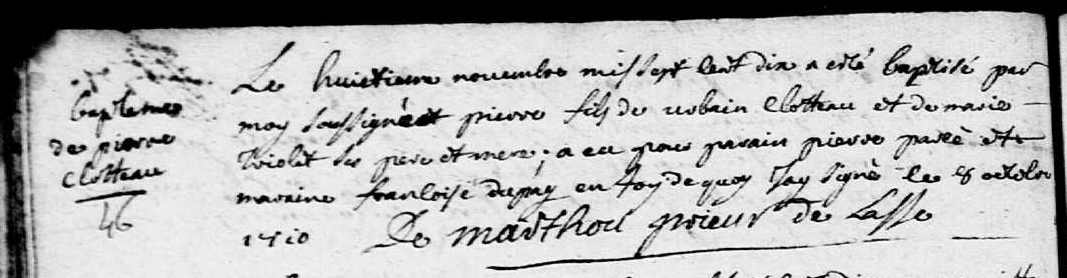 baptesme
de pierre
Clotteau
46
Le huictieme novembre mil sept cent dix a esté baptisé par
moy soussigné pierre fils de urbain Clotteau et de marie
triolit ses pere et mere, a eu pour parain pierre paree et
maraine francoise dupuy en foy de quoy Jay signé le 8 octobre
1710 De marthou prieur de Lasse